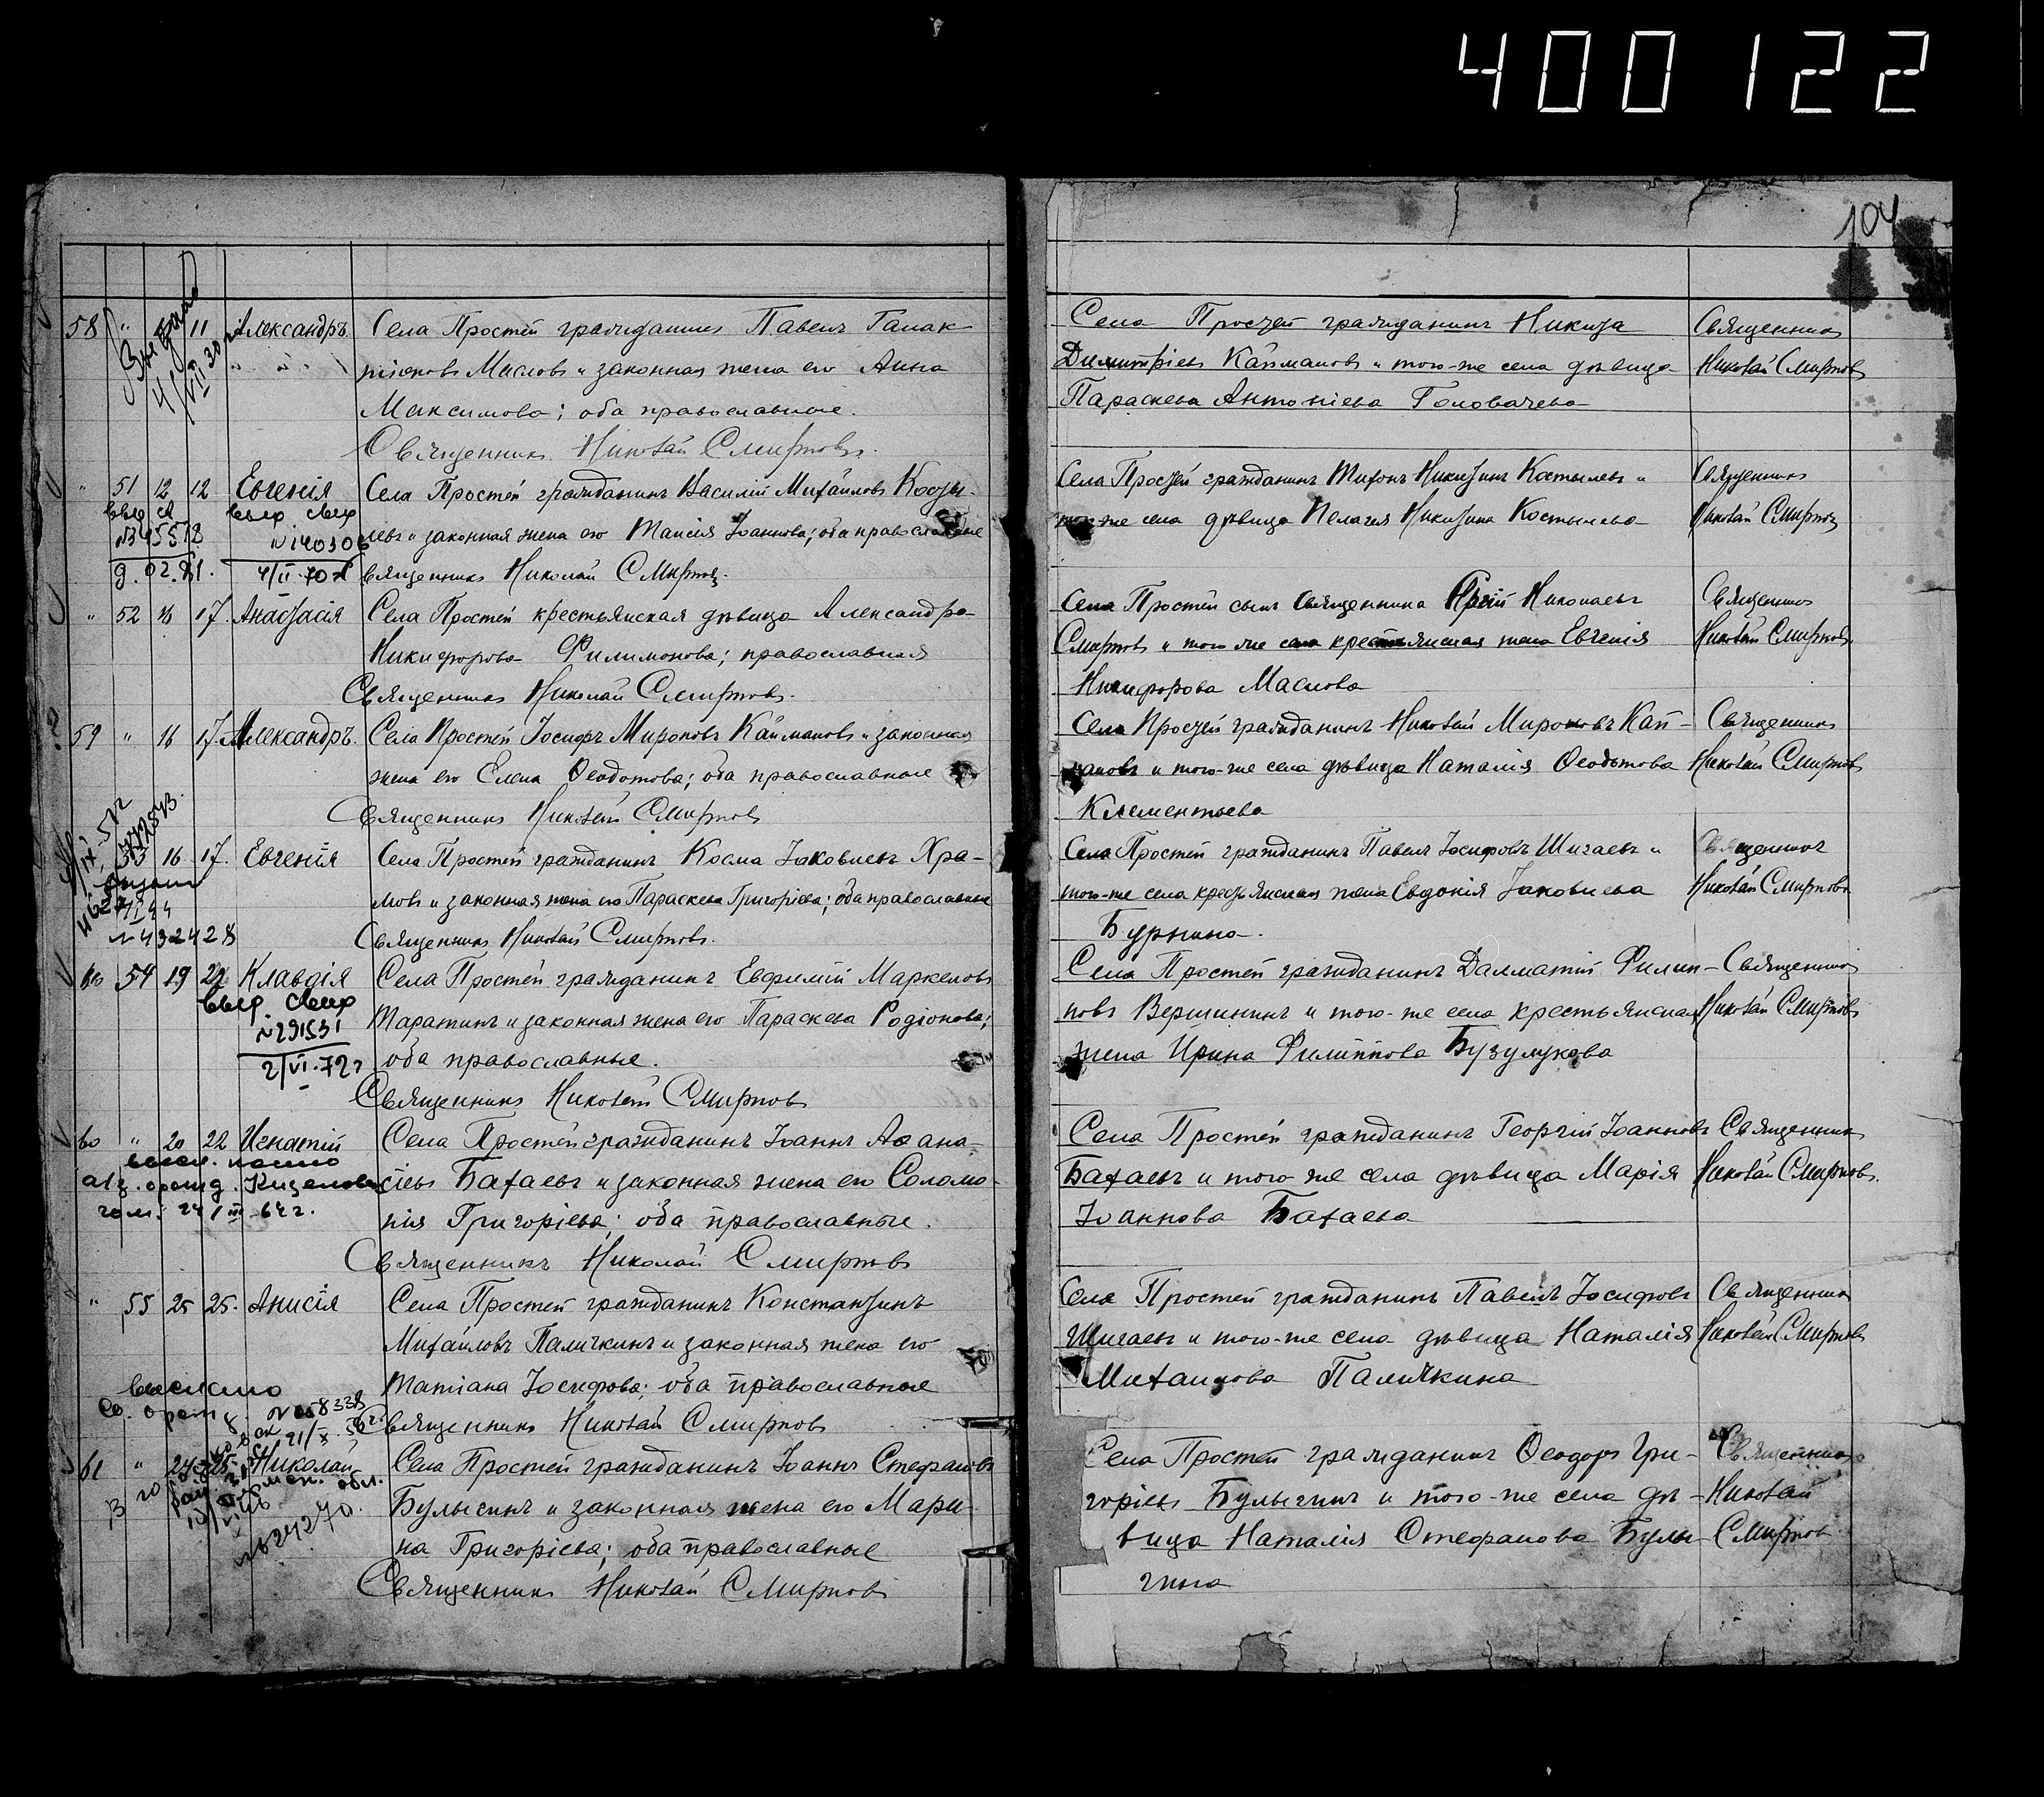 400122
104
58 " 11 Александръ Села Простей гражданинъ Павелъ Галак-
тіоновъ Масловъ и законная жена его Анна
Максимова; оба православные.
Священникъ Николай Смирновъ.
Села Простей гражданинъ Никита
Димитріевъ Каймановъ и того-же села дѣвица
Параскева Антоніева Головачева
Священникъ
Николай Смирновъ
" 51 12 12 Евгенія Села Простей гражданинъ Василій Михаиловъ Косты-
левъ и законная жена его Таисія Іоаннова; оба православные
Священникъ Николай Смирновъ.
выд св
№345572
9.02.81.
выд свид
№140306
4/II-70 г
Села Простей гражданинъ Тихонъ Никитинъ Костылевъ и
того-же села дѣвица Пелагея Никитина Костылева
Священникъ
Николай Смирновъ
" 52 16 17. Анастасія Села Простей крестьянская дѣвица Александра
Никифорова Филимонова; православная
Священникъ Николай Смирновъ.
Села Простей сынъ священника Николаевъ
Смирновъ и того же села крестьянская жена Евгенія
Никифорова Маслова
Священникъ
Николай Смирновъ.
59 " 16 17 Александръ. Села Простей Іосифъ Мироновъ Каймановъ и законная
жена его Елена Ѳеодотова; оба православные
Священникъ Николай Смирновъ
Села Простей гражданинъ Николай Мироновъ Кай-
мановъ и того-же села дѣвица Наталія Ѳеодотова
Клементьева
Священникъ
Николай Смирновъ
" 53 16 17. Евгенія Села Простей гражданинъ Косма Іаковлевъ Хра-
мовъ и законная жена его Параскева Григоріева; оба православные
Священникъ Николай Смирновъ.
№432428
Села Простей гражданинъ Павелъ Іосифовъ Шигаевъ и
того-же села крестьянская жена Евдокія Іаковлева
Бурнина.
Священникъ
Николай Смирновъ
54 19 22 Клавдія Села Простей гражданинъ Евфимій Маркеловъ
Таратинъ и законная жена его Параскева Родіонова;
оба православные.
Священникъ Николай Смирновъ
выд. свид
№291531
2/VI-72 г
Села Простей гражданинъ Далматій Филип-
повъ Вершининъ и того-же села крестьянская
жена Ирина Филиппова Бузулукова
Священникъ
Николай Смирновъ
60 " 20 22 Игнатій Села Простей гражданинъ Іоаннъ Аѳана-
сіевъ Бахаевъ и законная жена его Соломо-
нія Григоріева; оба православные.
Священникъ Николай Смирновъ
24/III-64 г.
Села Простей гражданинъ Георгій Іоанновъ
Бахаевъ и того же села дѣвица Марія
Іоаннова Бахаева
Священникъ
Николай Смирновъ.
" 55 25 25. Анисія Села Простей гражданинъ Константинъ
Михаиловъ Паличкинъ и законная жена его
Татіана Іосифова; оба православные
Священникъ Николай Смирновъ
выслано
Села Простей гражданинъ Павелъ Іосифовъ
Шигаевъ и того-же села дѣвица Наталія
Михаилова Паличкина
Священникъ
Николай Смирновъ
61 " 24 25 Николай Села Простей гражданинъ Іоаннъ Стефановъ
Булыгинъ и законная жена его Мари-
на Григоріева; оба православные
Священникъ Николай Смирновъ
Села Простей гражданинъ Ѳеодоръ Гри-
горіевъ Булыгинъ и того-же села дѣ-
вица Наталія Стефанова Булы-
гина
Священникъ
Николай
Смирновъ